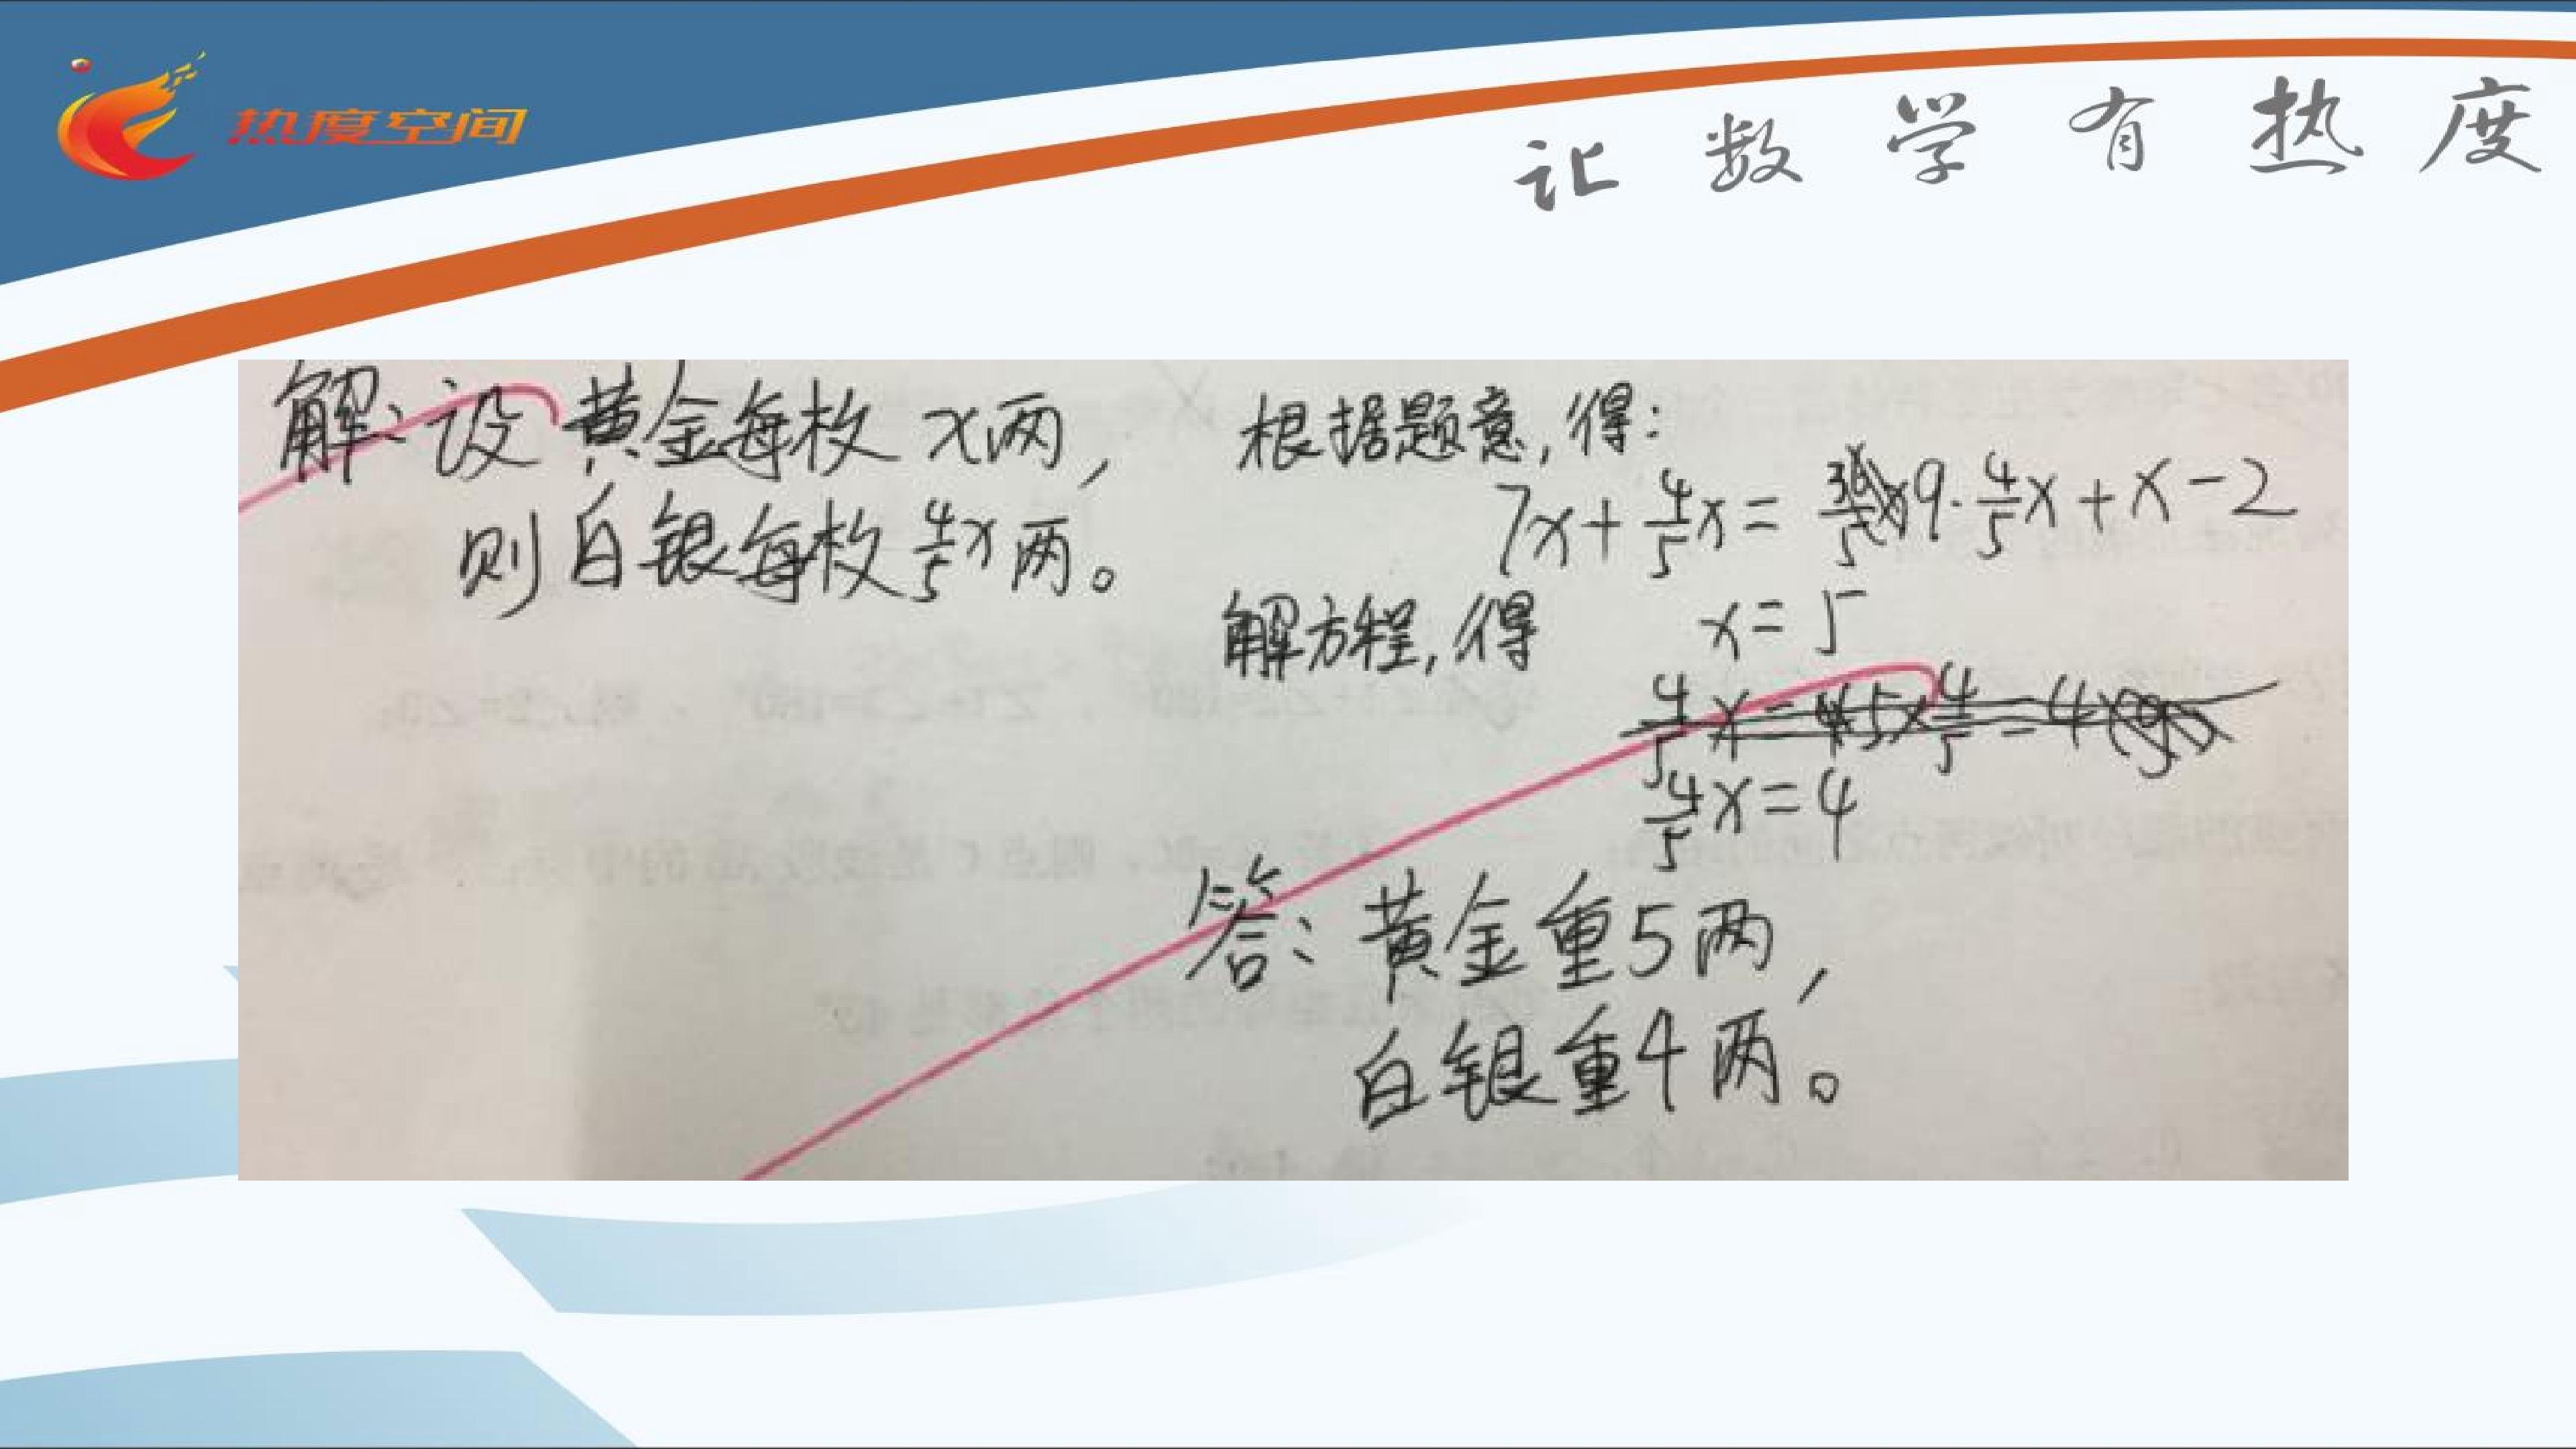 热度空间
让数学有热度
解:设黄金每枚x两,
则白银每枚4/5x两。
根据题意,得:
7x+4/5x=9·4/5x+x-2
解方程,得 x=5
4/5x=4
答:黄金重5两,
白银重4两。